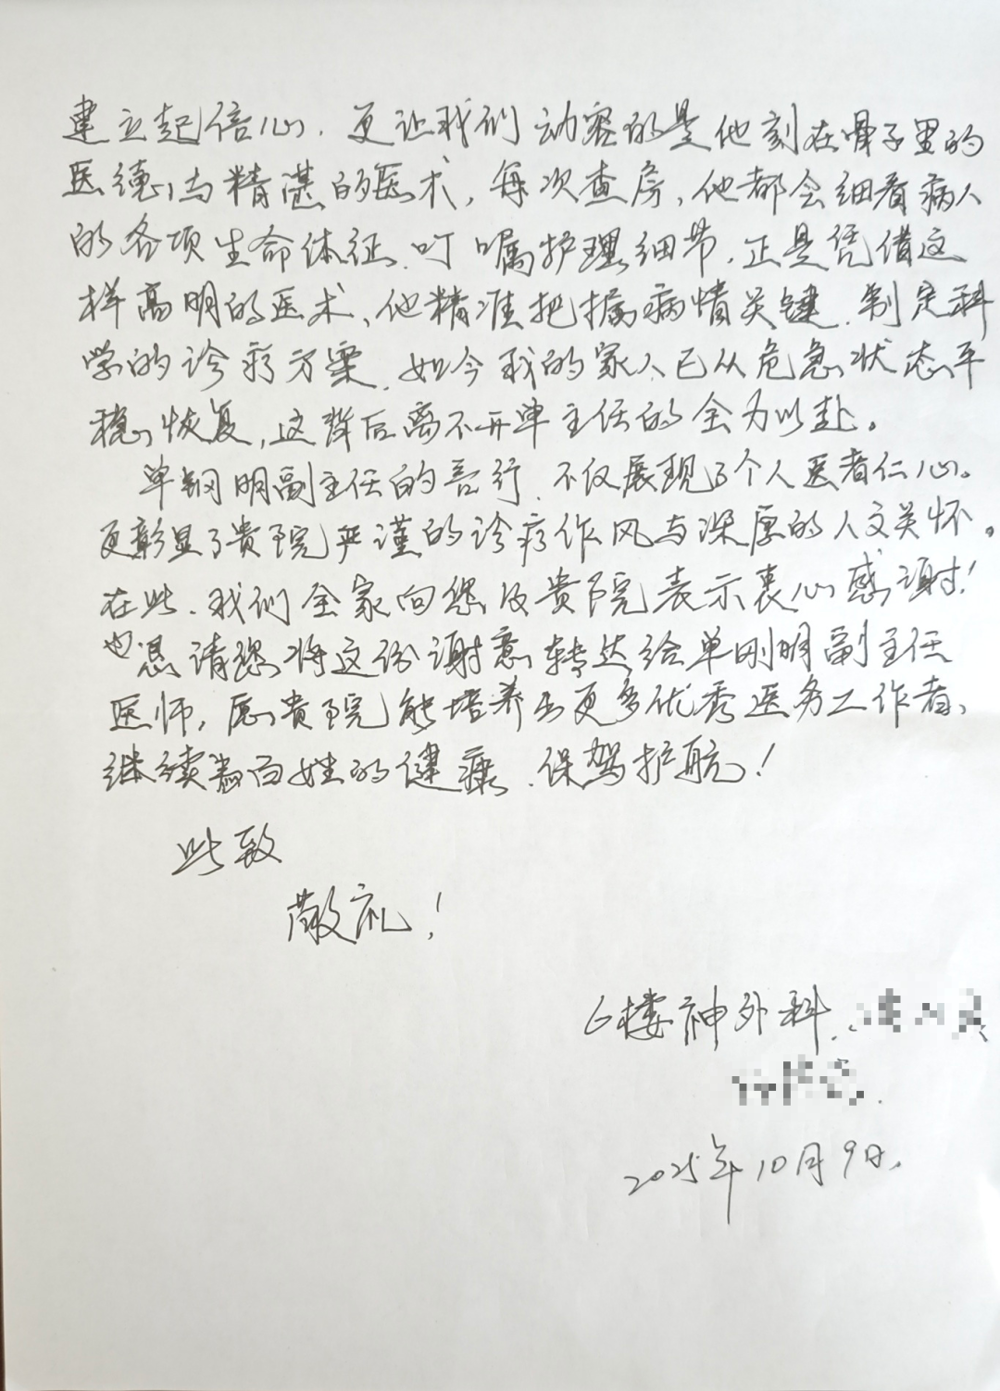 建立起信心，更让我们动容的是他刻在骨子里的
医德与精湛的医术，每次查房，他都会细看病人
的各项生命体征、叮嘱护理细节，正是凭借这
样高明的医术、他精准把握病情关键，制定科
学的诊疗方案，如今我的家人已从危急状态平
稳恢复，这背后离不开单主任的全力以赴。
单钢明副主任的言行，不仅展现了个人医者仁心。
更彰显了贵院严谨的诊疗作风与深厚的人文关怀。
在此、我们全家向您及贵院表示衷心感谢！
也恳请您将这份谢意转达给单刚明副主任
医师，愿贵院能培养出更多优秀医务工作者、
继续为百姓的健康、保驾护航！
此致
敬礼！
6楼神外科、
2025年10月9日、